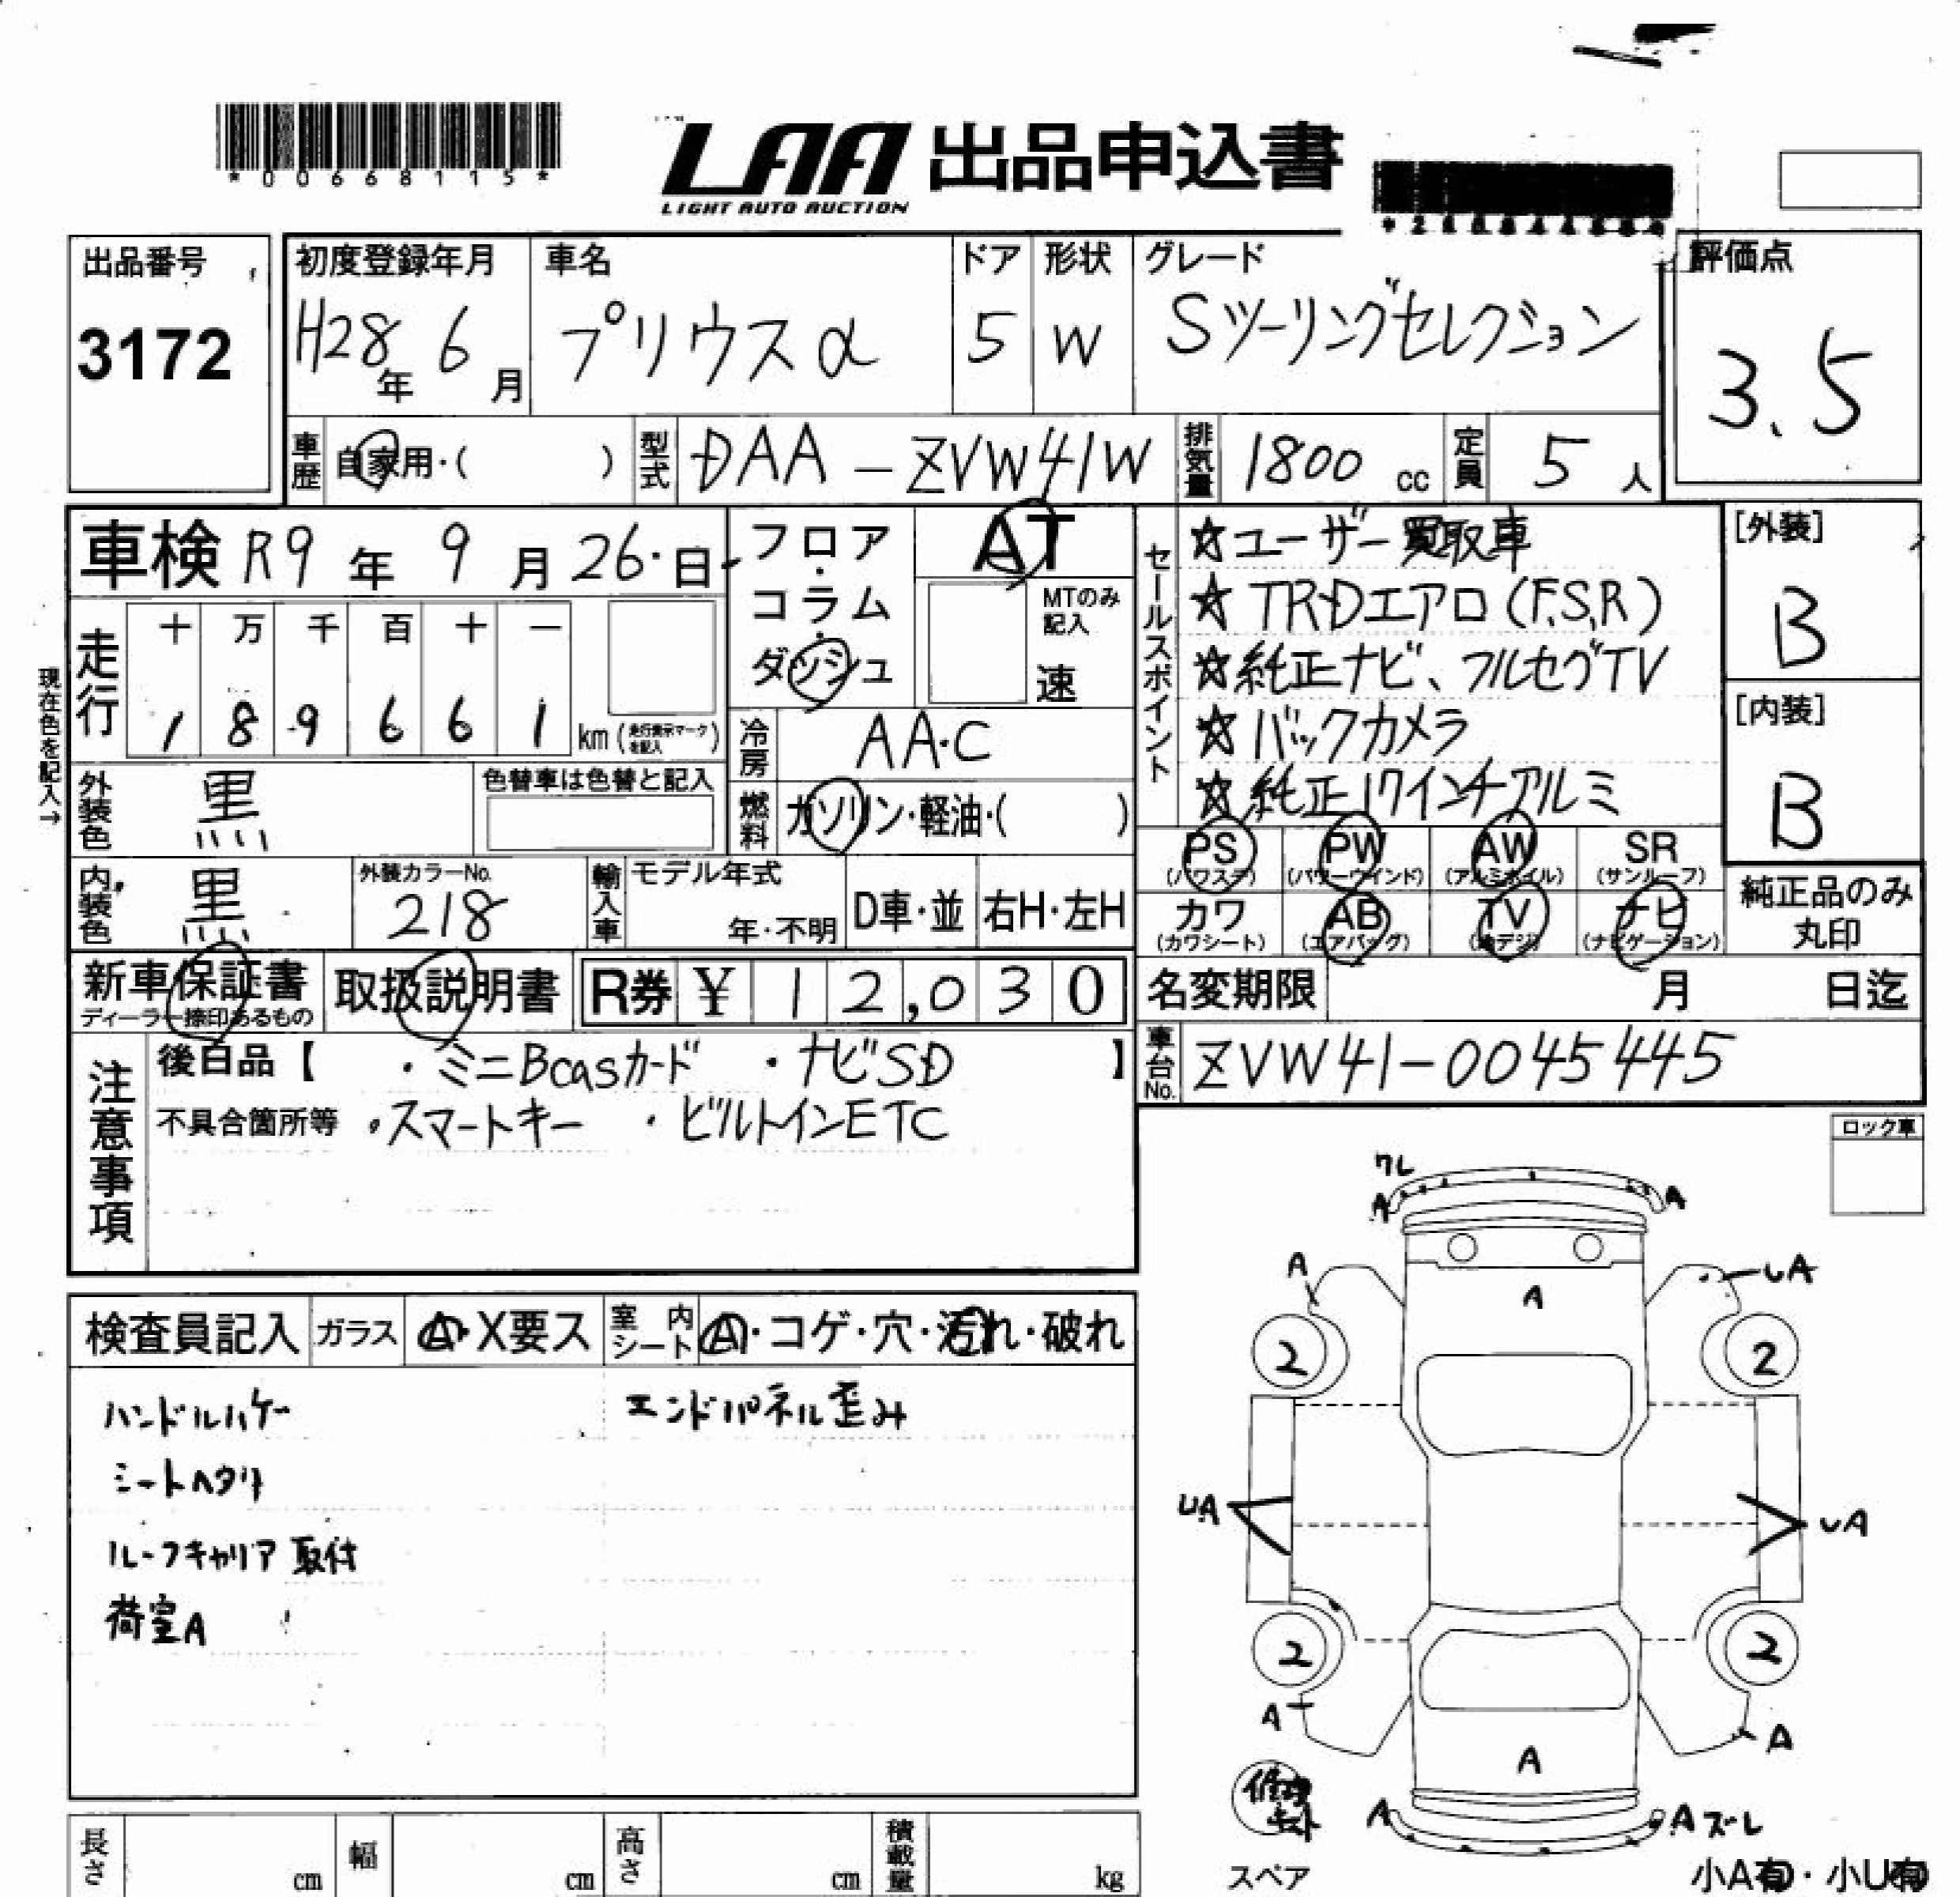 *00668115*
LAA 出品申込書
LIGHT AUTO AUCTION
出品番号
3172
初度登録年月
H28年 6月
車名
プリウスα
ドア
5
形状
W
グレード
Sツーリングセレクション
評価点
3.5
車歴 自家用・( )
型式 DAA-ZVW41W
排気量 1800 cc
定員 5 人
車検 R9年 9月 26日
フロア・コラム・ダッシュ
AT
MTのみ記入
速
走行
十 万 千 百 十 一
1 8 9 6 6 1 km
現在色を記入→
冷房 AA・C
燃料 ガソリン・軽油・( )
外装色 黒
色替車は色替と記入
内装色 黒
外装カラーNo.
218
輸入車 モデル年式
年・不明
D車・並 右H・左H
セールスポイント
☆ユーザー買取車
☆TRDエアロ(F.S.R)
☆純正ナビ、フルセグTV
☆バックカメラ
☆純正17インチアルミ
[外装]
B
[内装]
B
PS (パワステ) PW (パワーウインド) AW (アルミホイル) SR (サンルーフ)
カワ (カワシート) AB (エアバッグ) TV (地デジ) ナビ (ナビゲーション)
純正品のみ
丸印
新車保証書
ディーラー捺印あるもの
取扱説明書
R券 ¥ 12,030
名変期限 月 日迄
車台No. ZVW41-0045445
注意事項
後日品【 ・ミニBcasカード ・ナビSD 】
不具合箇所等 ・スマートキー ・ビルトインETC
ロック車
検査員記入 ガラス A・X要ス 室内シート A・コゲ・穴・汚れ・破れ
ハンドルハゲ
エンドパネル歪み
シートヘタリ
ルーフキャリア取付
荷室A
ワレ
A A
A UA
A
2 2
UA UA
2 2
A A
A
A A ズレ
スペア
小A有・小U有
長さ cm 幅 cm 高さ cm 積載量 kg